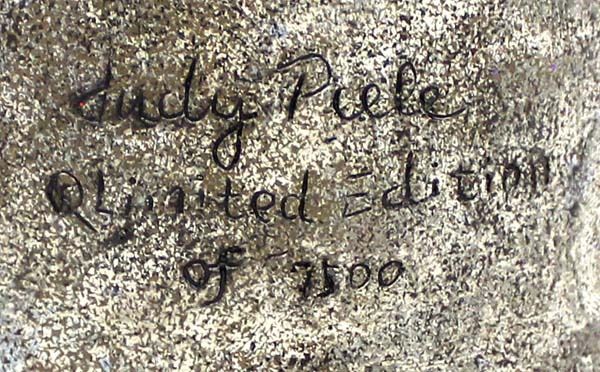 Judy Piele
® Limited Edition
of 7500